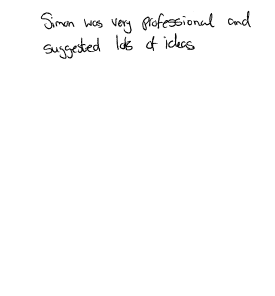 Simon was very professional and
suggested lots of ideas